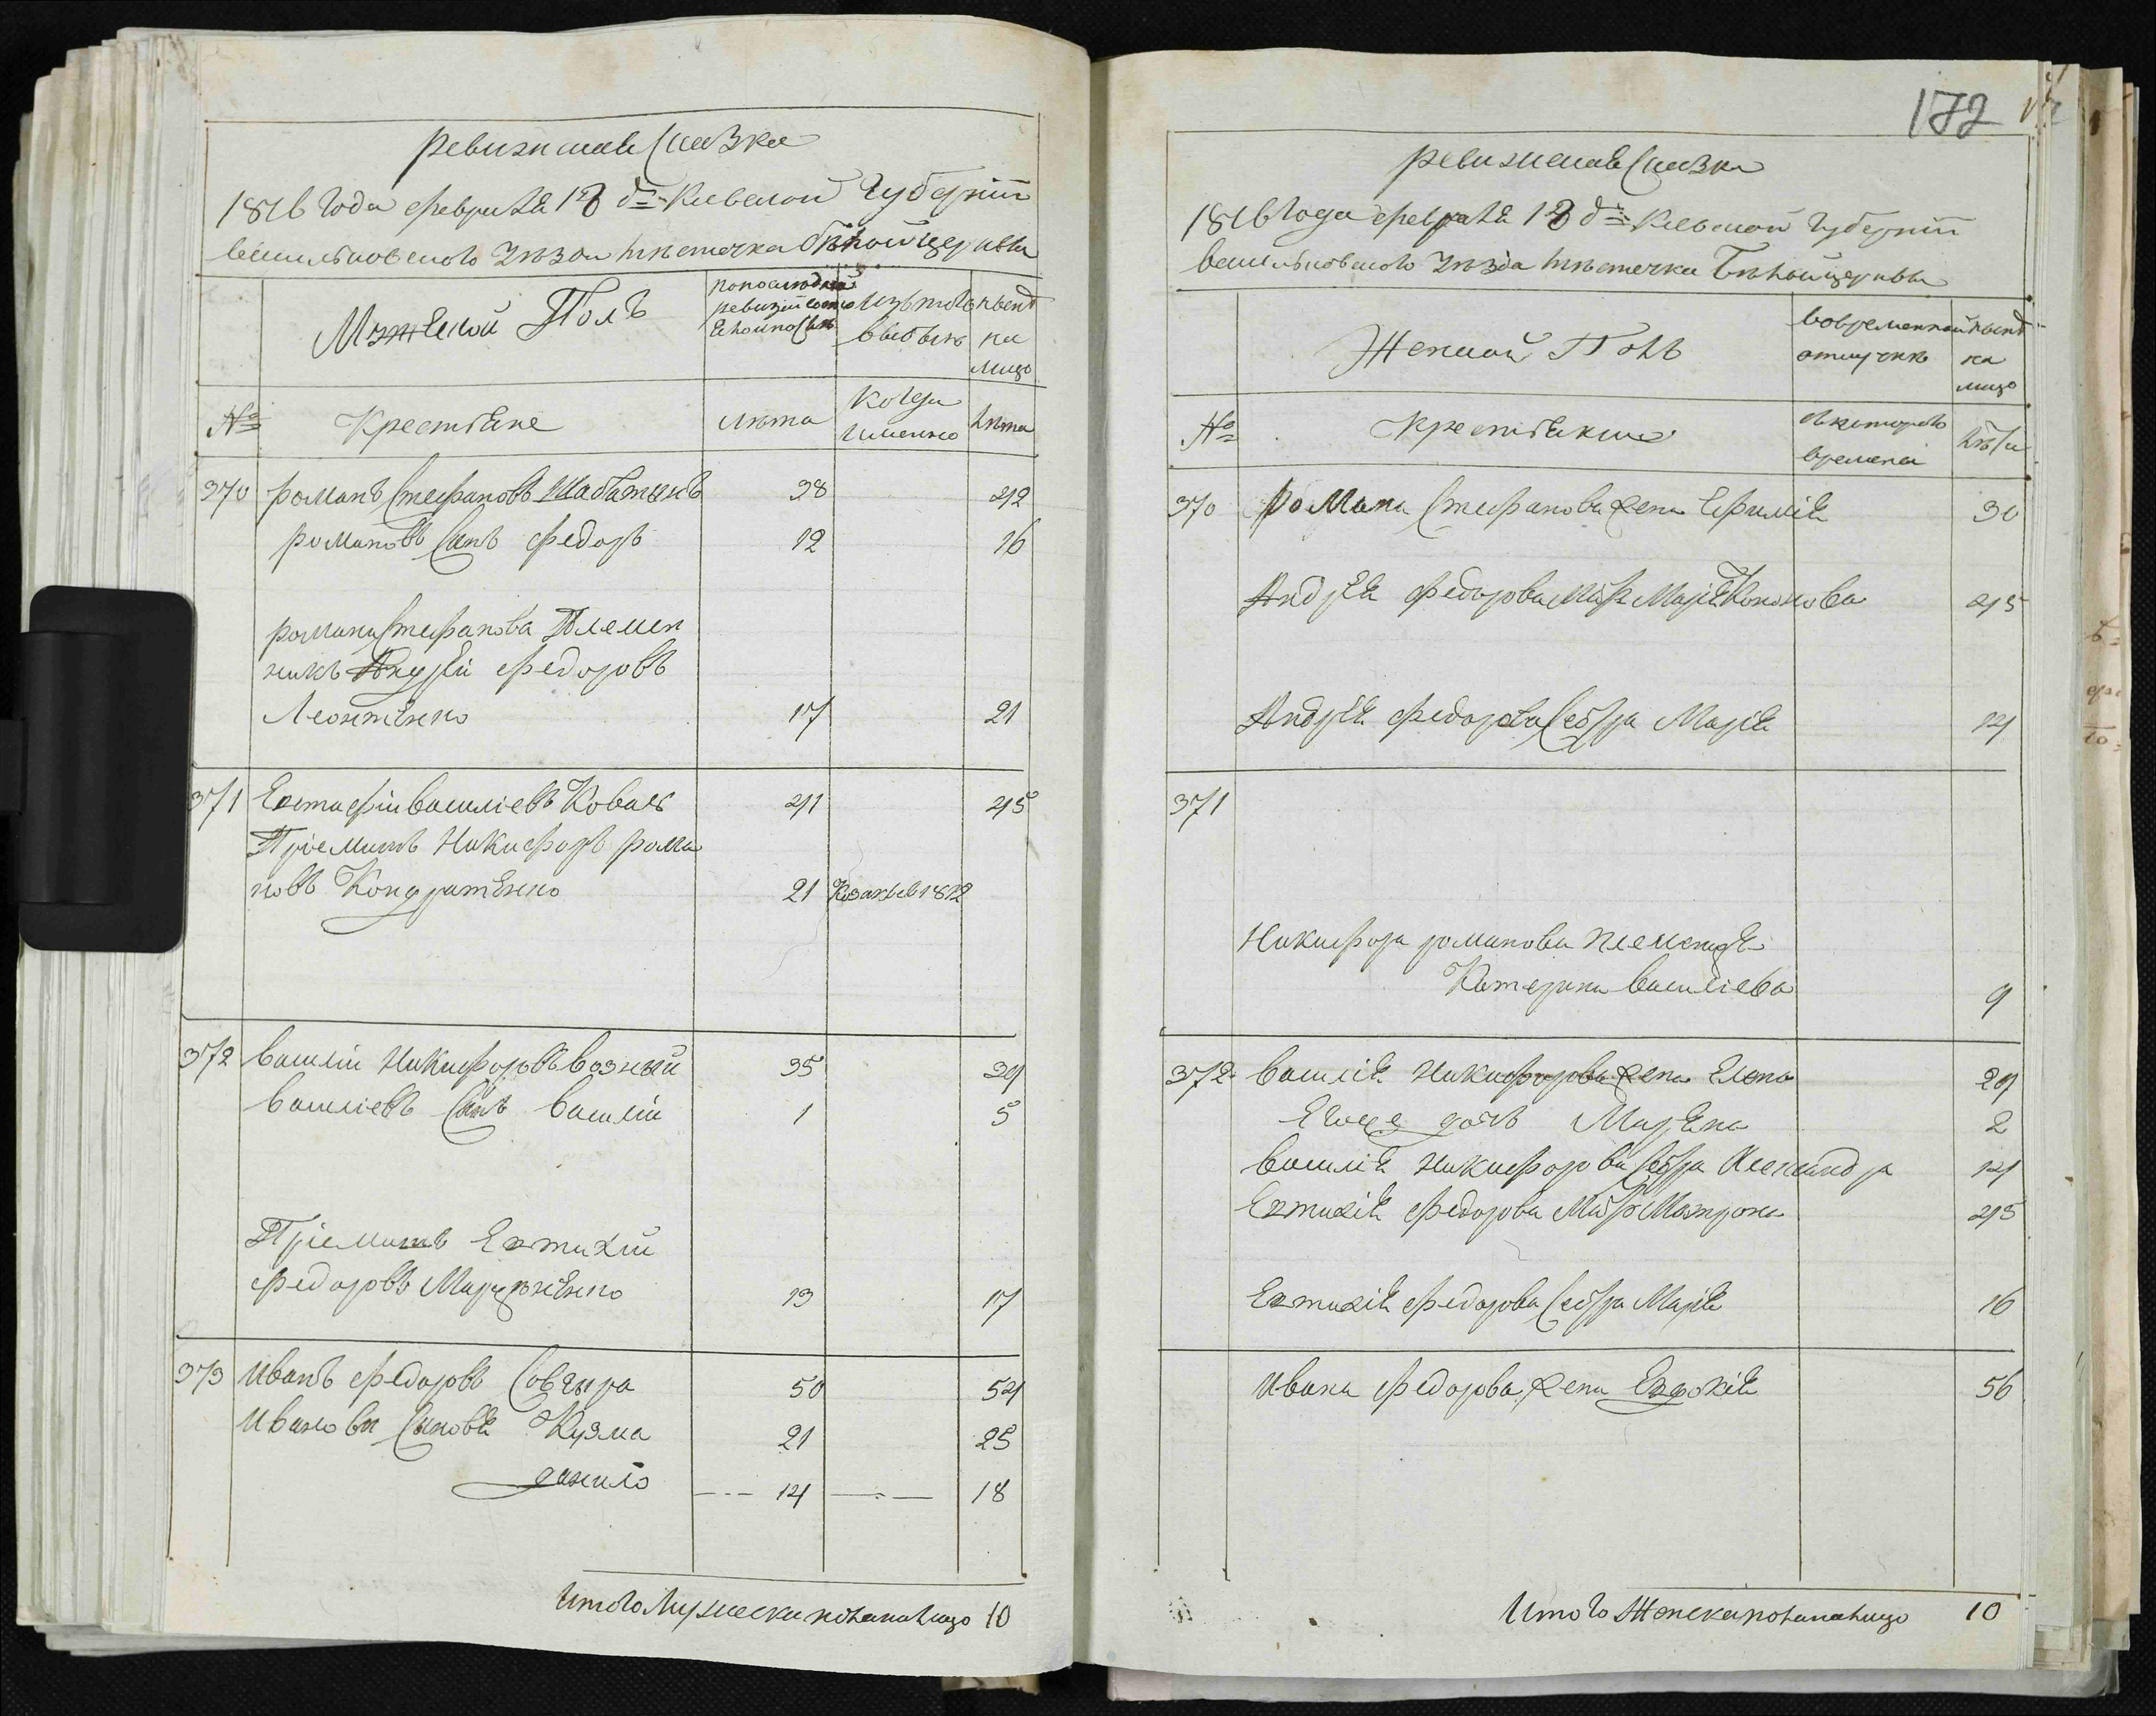 ревизская Сказка
1816 года февраля 18 д= Киевской Губерніи
васильковского Уѣзда мѣстечка бѣлойцеркви
Мужеской Полъ
попоследней
ревизіи состо
яло и после
изътого
выбыло
ныне
на
лицо
№
Крестьяне
лѣта
Когда
именно
лѣта
370 романъ Стефановъ Шабатынъ 38 42
романовъ Сынъ федоръ 12 16
романа Стефанова Племен
никъ Андрей федоровъ
Леонтенко 17 21
371 Евстафій василіевъ Коваль 41 45
Пріемышъ Никифоръ рома
новъ Кондратенко 21 Козакъ в 1812
372 василій Никифоровъ возный 35 39
василіевъ Сынъ василій 1 5
Пріемышъ Евтихій
федоровъ 13 17
373 Иванъ федоровъ Совгыра 50 54
Ивановы Сыновя Кузма 21 25
данило 14 18
Итого Мужеска пола налицо 10
172
ревизская Сказка
1816 года февраля 18 д= Киевской Губерніи
васильковского Уѣзда мѣстечка Бѣлойцеркви
Женской Полъ
вовременной
отлучкѣ
ныне
на
лицо
№
Крестьянки
съкоторого
времени
лѣта
370 романа Стефанова жена Ефимія 30
Андрея федорова мать Марія Кононова 45
Андрея федорова Сестра Марія 14
371
Никифора романова племянница
Катерина василіева 9
372 василія Никифорова жена Елена 29
Егоже дочь Марена 2
василія Никифорова Сестра Александра 14
Евтихія федорова мать Матрона 45
Евтихія федорова Сестра Марія 16
Ивана федорова жена Евдокія 56
Итого Женска пола налицо 10